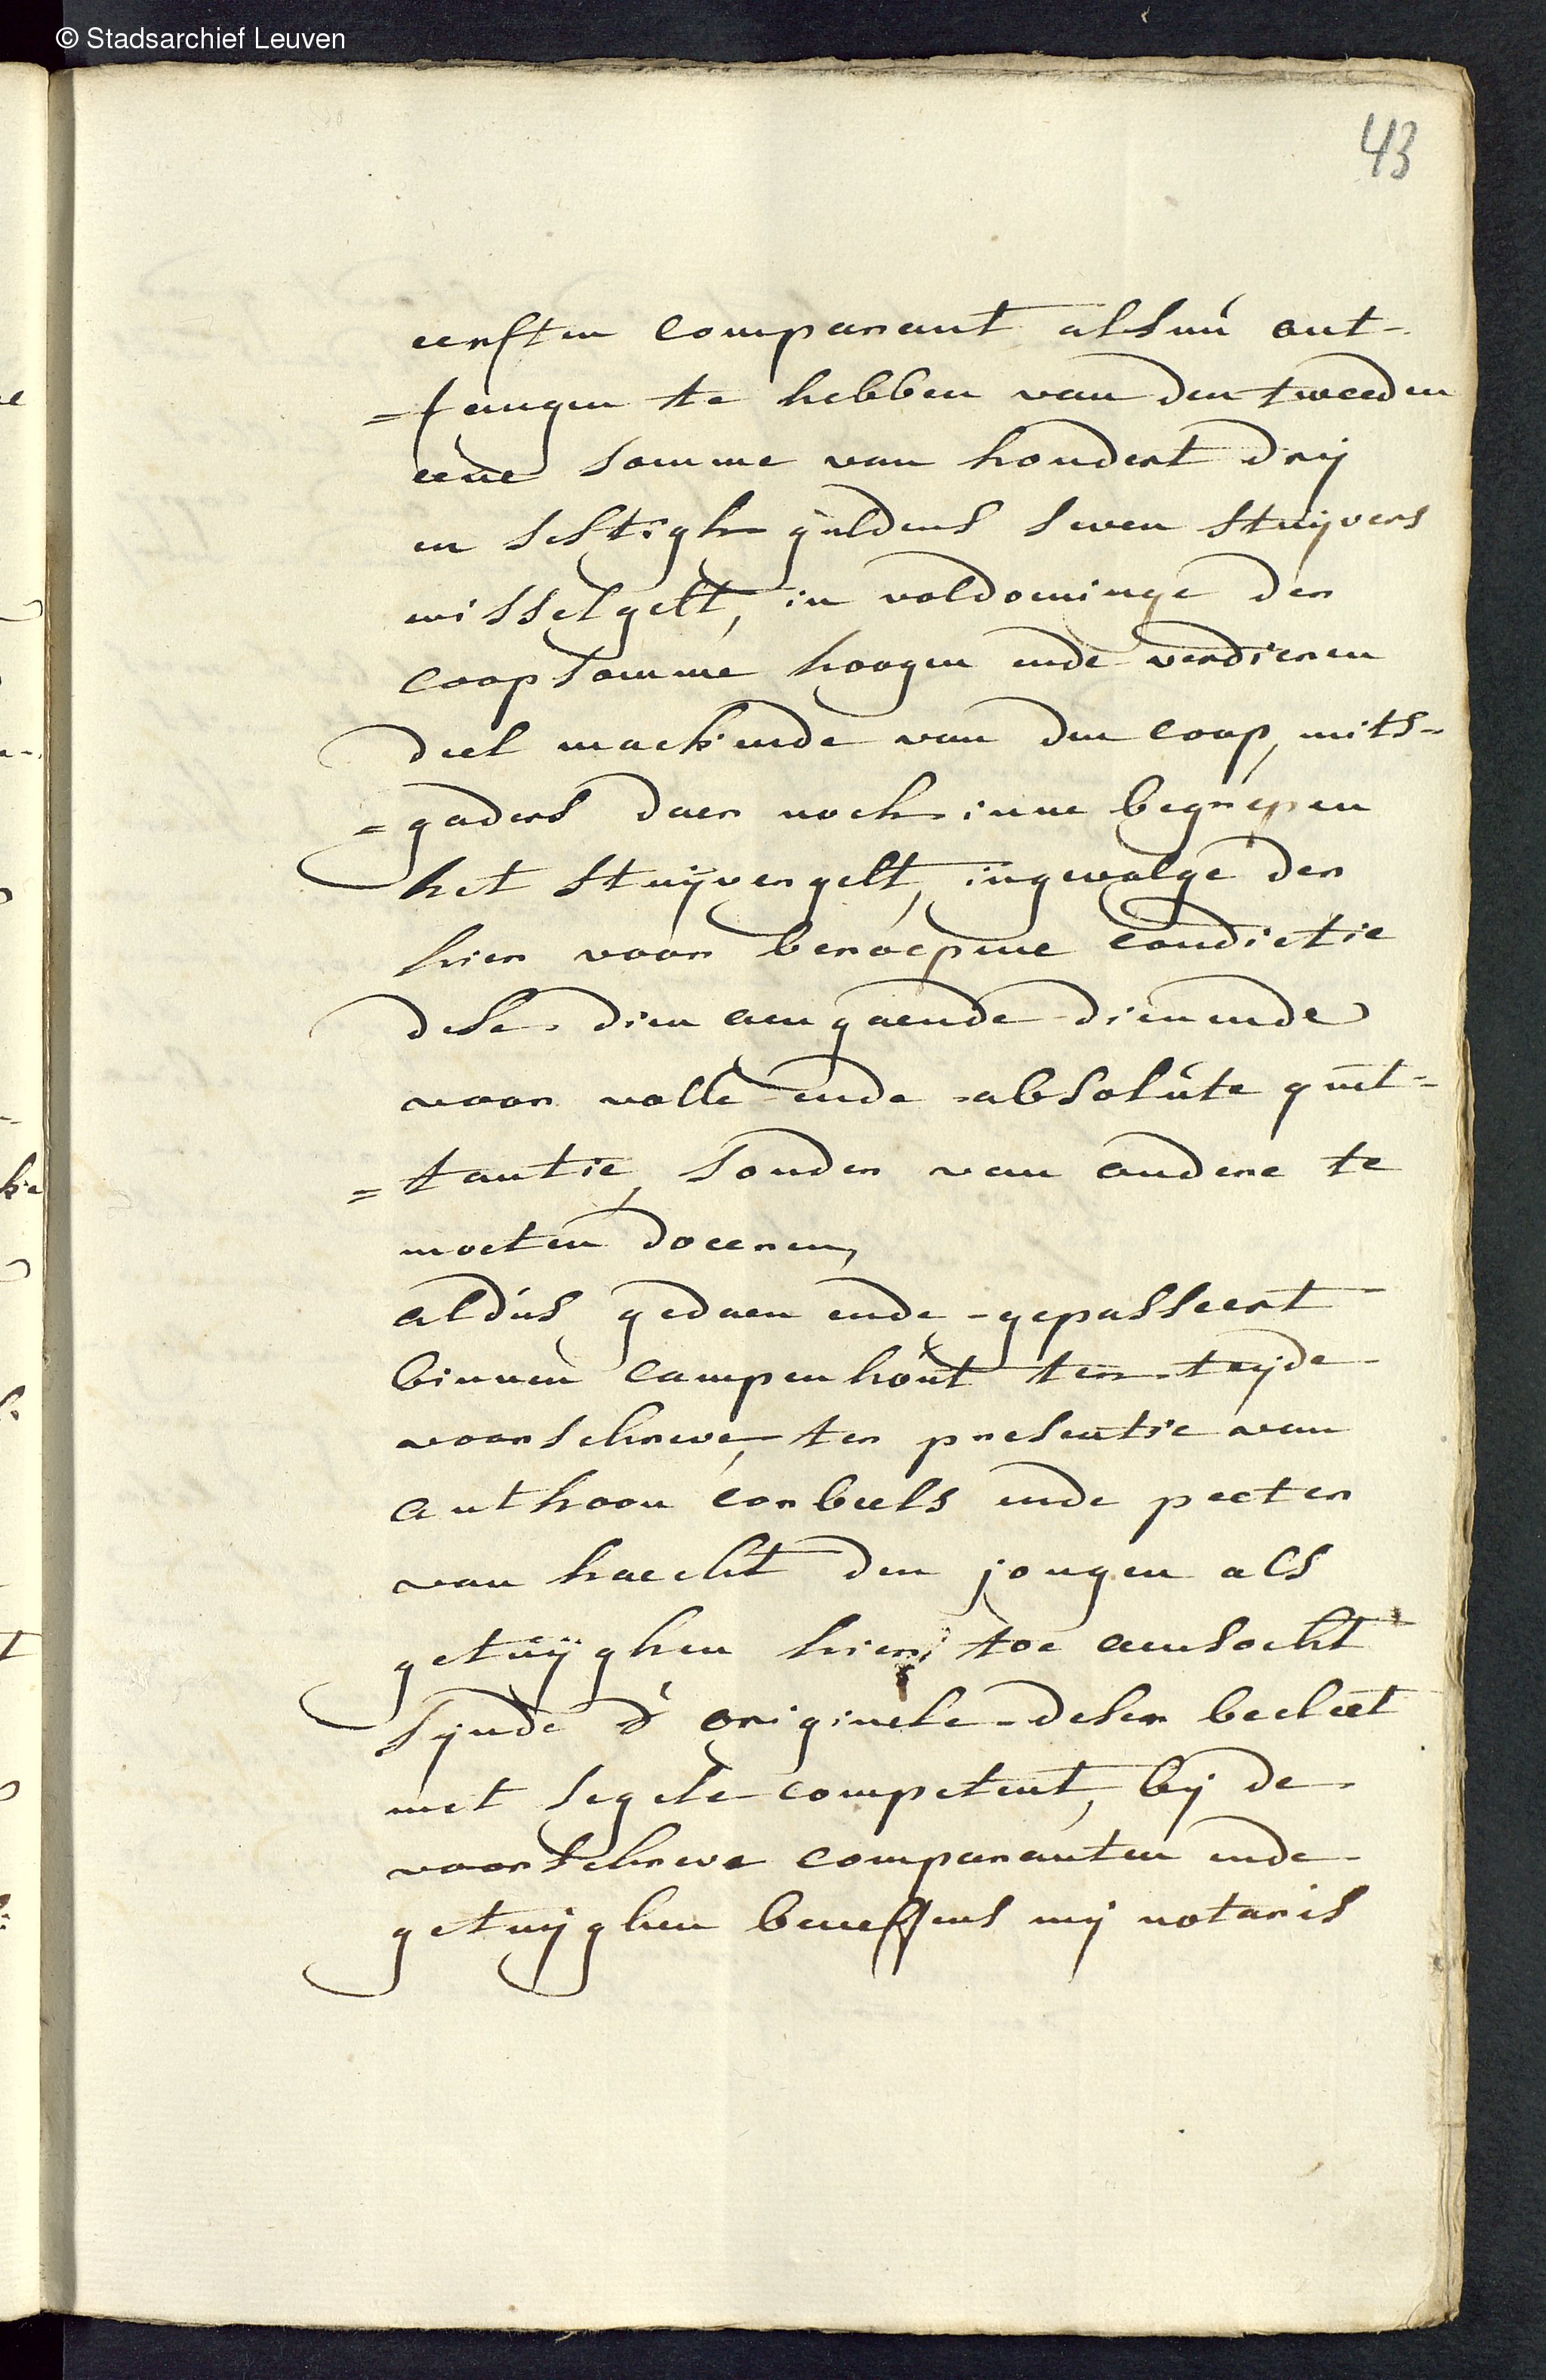 © Stadsarchief Leuven
43
eersten comparant alsnú ont-
=fangen te hebben van den tweeden
eene somme van hondert drij
en sestigh guldens seven stuijvers
wisselgelt, in voldoeninge der
coopsomme hoogen ende verdieren
deel mackende van den coop, mits-
=gaders daer noch inne begrepen
het stuijvergelt, ingevolge der
hier voor beroepene condictie
dese dien aengaende dienende
voor volle ende absolúte quit-
=tantie, sonder van andere te
moeten doceren,
aldús gedaen ende gepasseert
binnen campenhoút ten teijde
voorschreve, ter presentie van
anthoon corbeels ende peeter
van haecht den jongen als
getúÿghen hier toe aensocht
sijnde d' originele deser becleet
met segele competent, bij de
voorschreve comparanten ende
getuijghen beneffens mij notaris